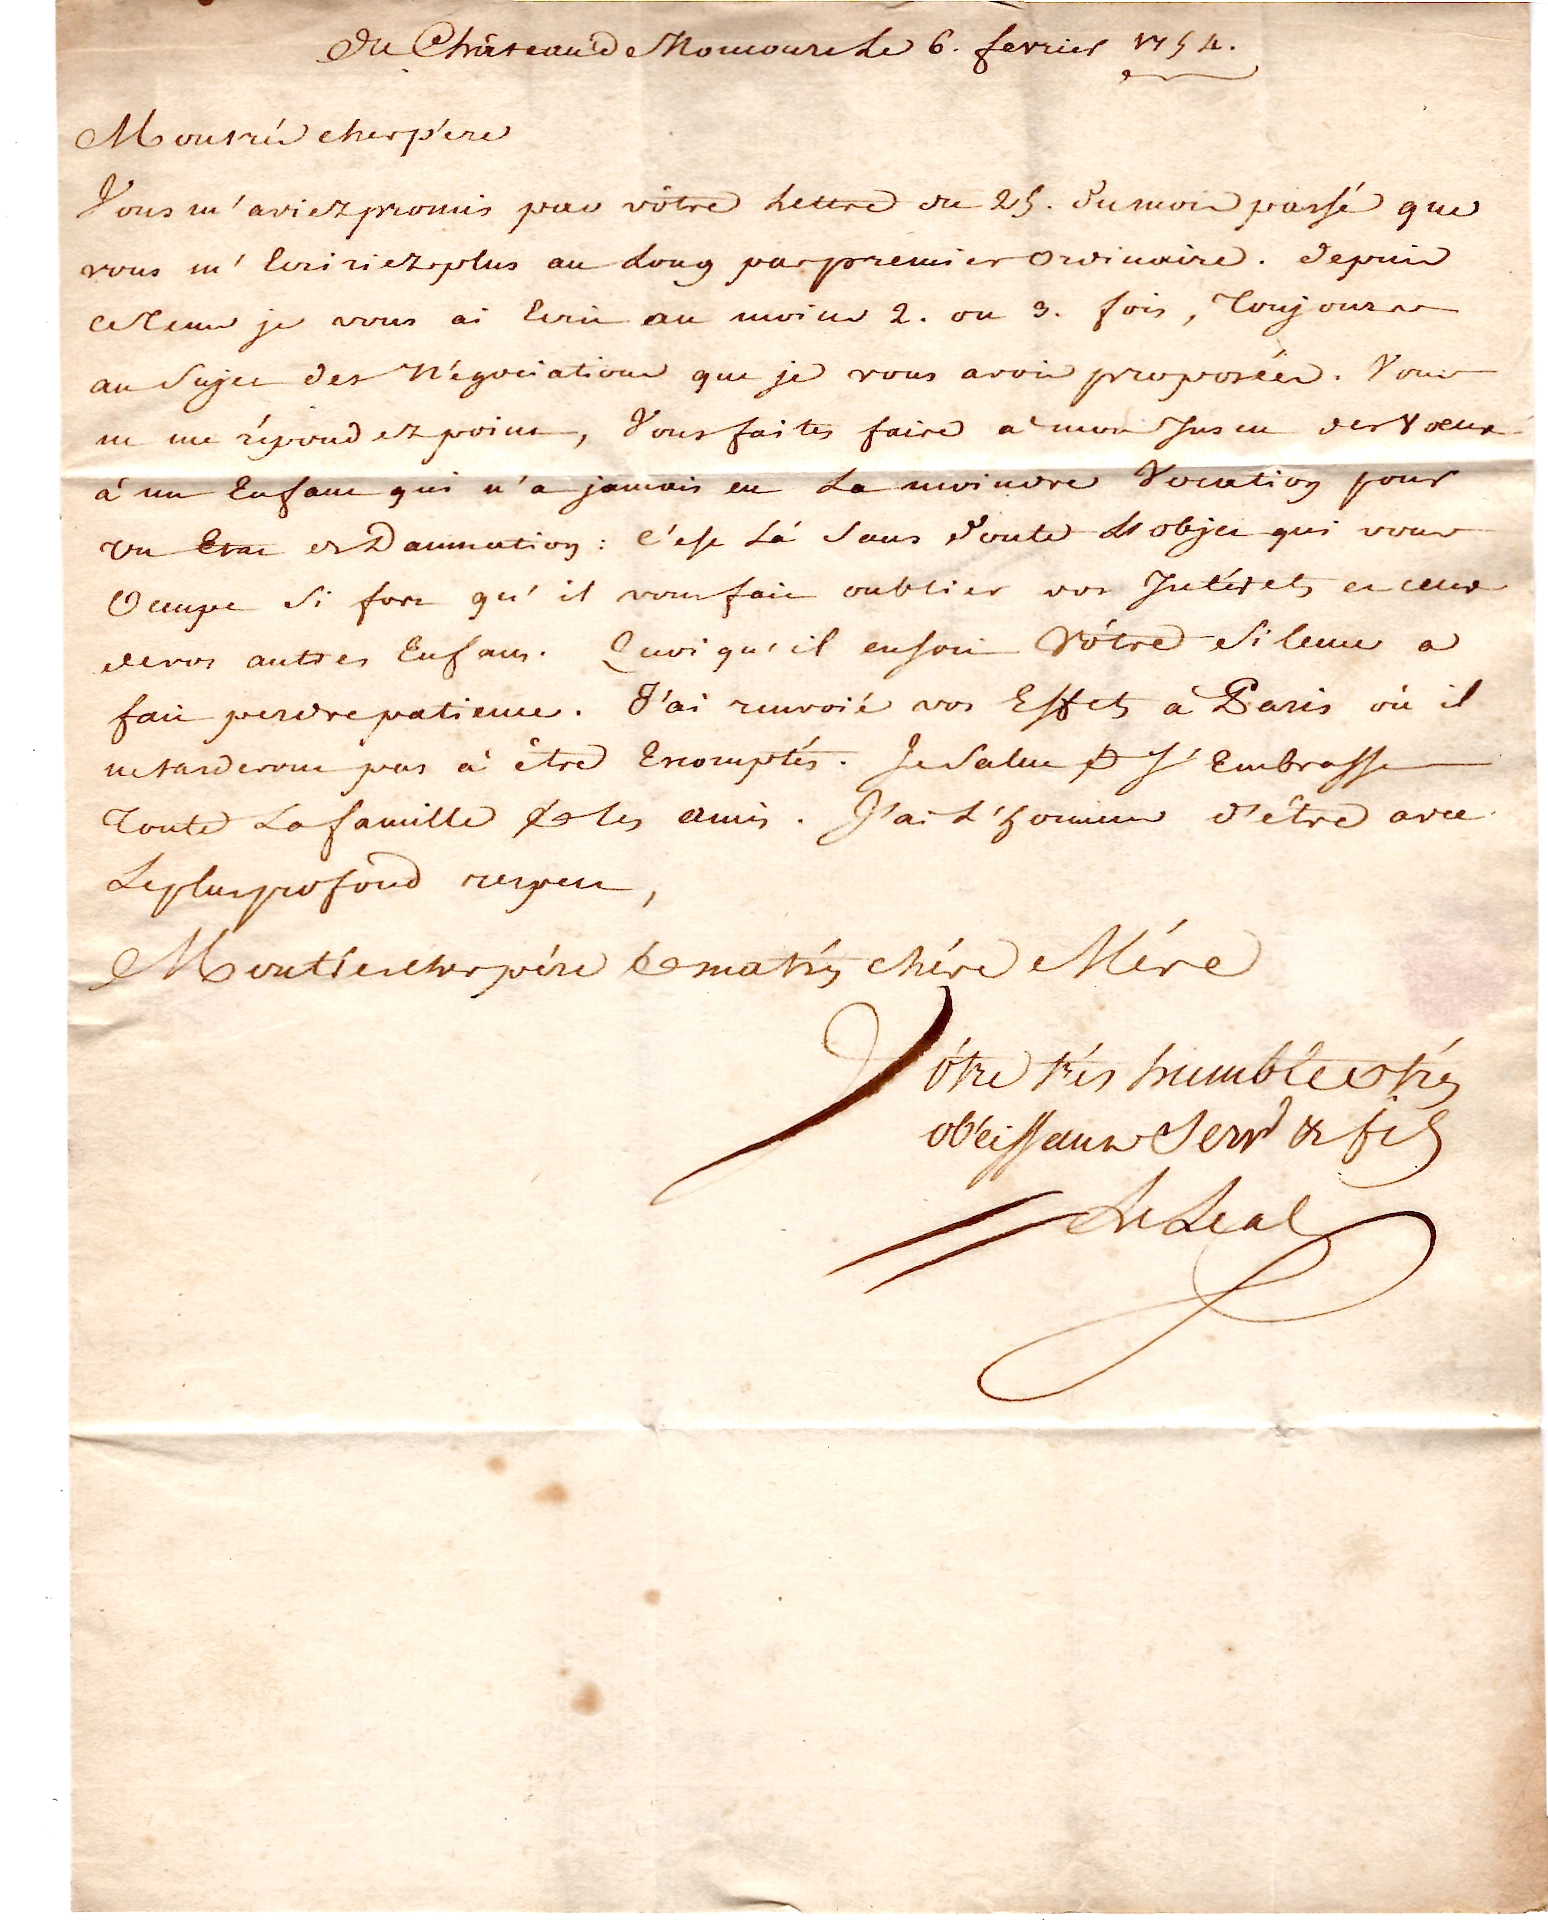 Du Château de Monourt Le 6. fevrier 1754.
Mon trés cher pere
Vous m'aviez promis par vôtre Lettre du 25. du mois passé que
vous m'Ecririez plus au Long par premier Ordinaire. depuis
ce tems je vous ai Ecrit au moins 2. ou 3. fois, Toujours
au Sujet des Négociations que je vous avois proposées. Vous
ne me répondez point, Vous faites faire a mon Insçu des Voeux
à un Enfant qui n'a jamais eu La moindre Vocation pour
un Etat de Damnation : C'est Là Sans doute L'objet qui vous
Occupe Si fort qu'il vous fait oublier vos Intérets et ceux
de vos autres Enfans. Quoi qu'il en soit Vôtre Silence a
fait perdre patience. J'ai renvoié vos Effets à Paris où il
ne tarderont pas à être Escomptés. Je Salue & J'Embrasse
Toute La famille & les amis. J'ai L'honneur d'être avec
Le plus profond respect,
Mon trés cher pére & ma trés chére Mére
Vôtre trés humble & trés
obéissant Servr & fils
Le Leal